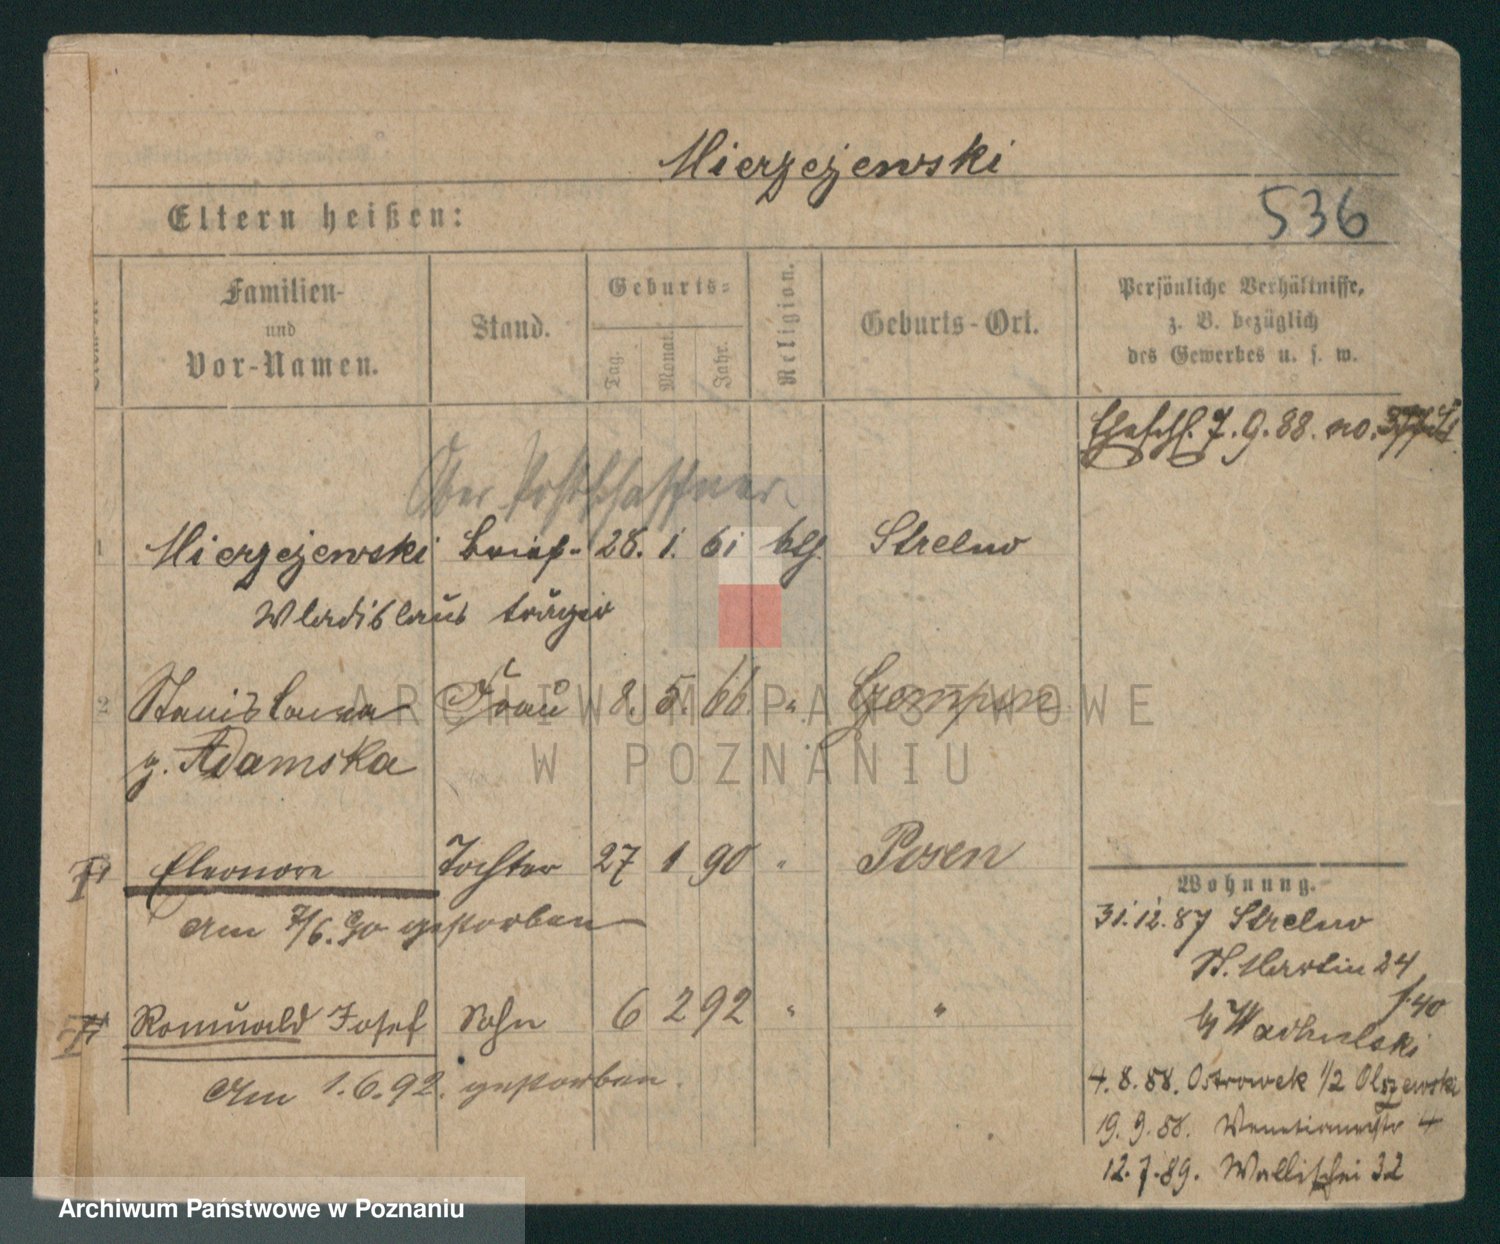 Mierzejewski
Eltern heißen:
536
Familien-
und
Vor-Namen.
Stand.
Geburts-
Tag.
Monat.
Jahr.
Religion.
Geburts-Ort.
Persönliche Verhältnisse,
z. B. bezüglich
des Gewerbes u. s. w.
Eheschl. 7.9.88. no.
Ober Postschaffner
1 Mierzejewski Brief- 28. 1. 61 klg Strelno
Wladislaus träger
2 Stanislawa Frau 8. 5. 66. "
g. Adamska
Eleonore Tochter 27 1 90 " Posen
Am 7/6. 90 gestorben
Romuald Josef Sohn 6 2 92 " "
Am 1.6.92. gestorben.
Wohnung.
31.12.87 Strelno
St. Martin 24
f. 40
4.8.88. Ostrowek 1/2 Olszewski
19.9.88. Venetianerstr 4
12.7.89. Wallischei 32
ARCHIWUM PAŃSTWOWE
W POZNANIU
Archiwum Państwowe w Poznaniu